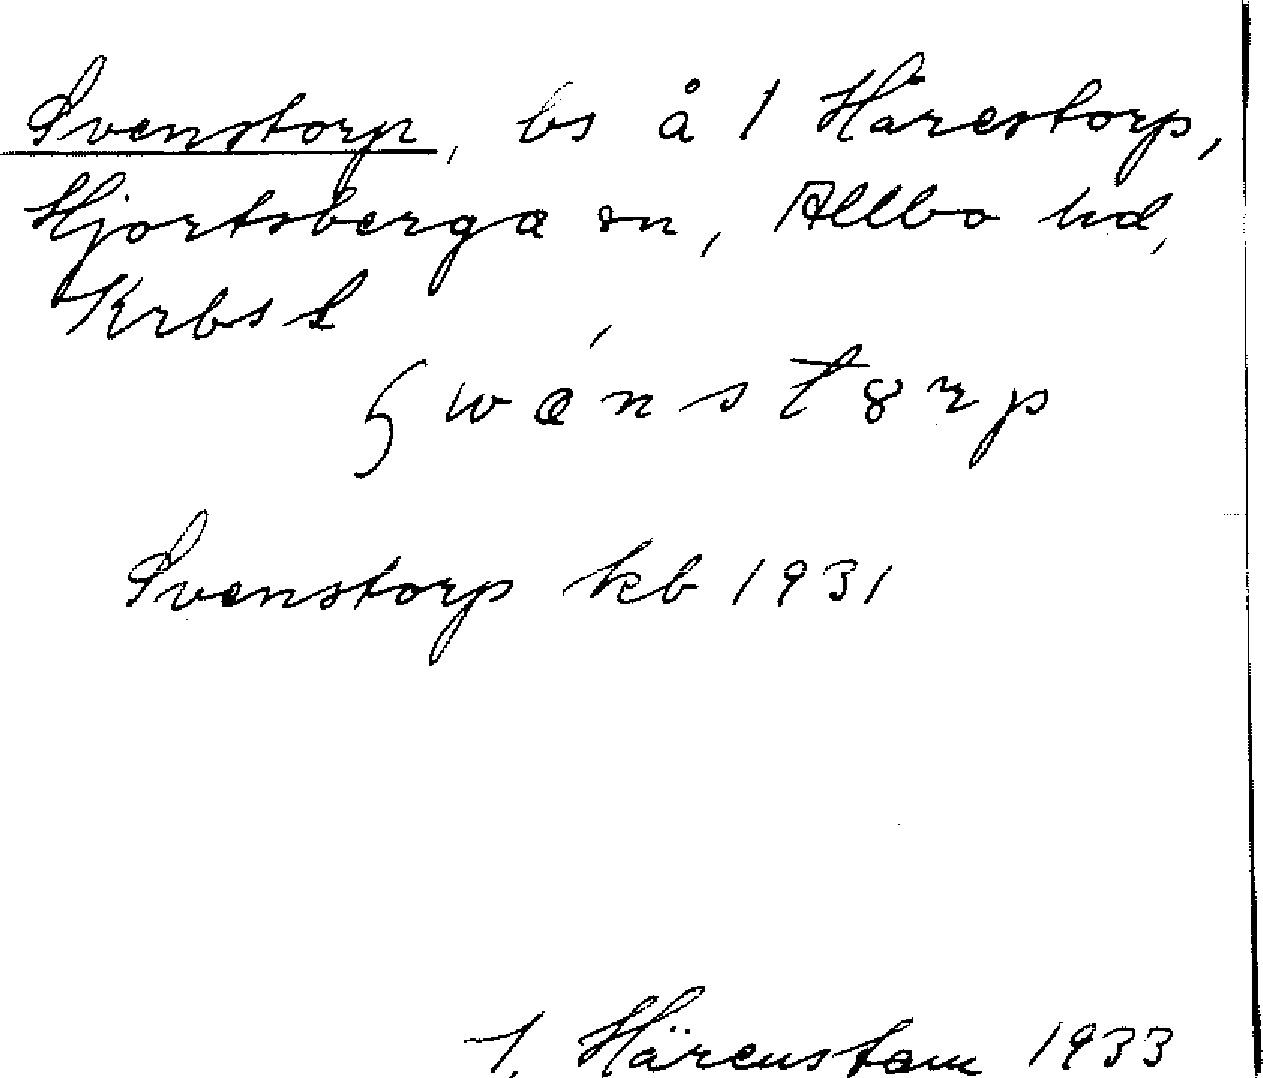 Svenstorp, bs å 1 Härestorp,
Hjortsberga sn, Allbo hd,
Krbs l
Svenstorp kb 1931
J. Härenstam 1933